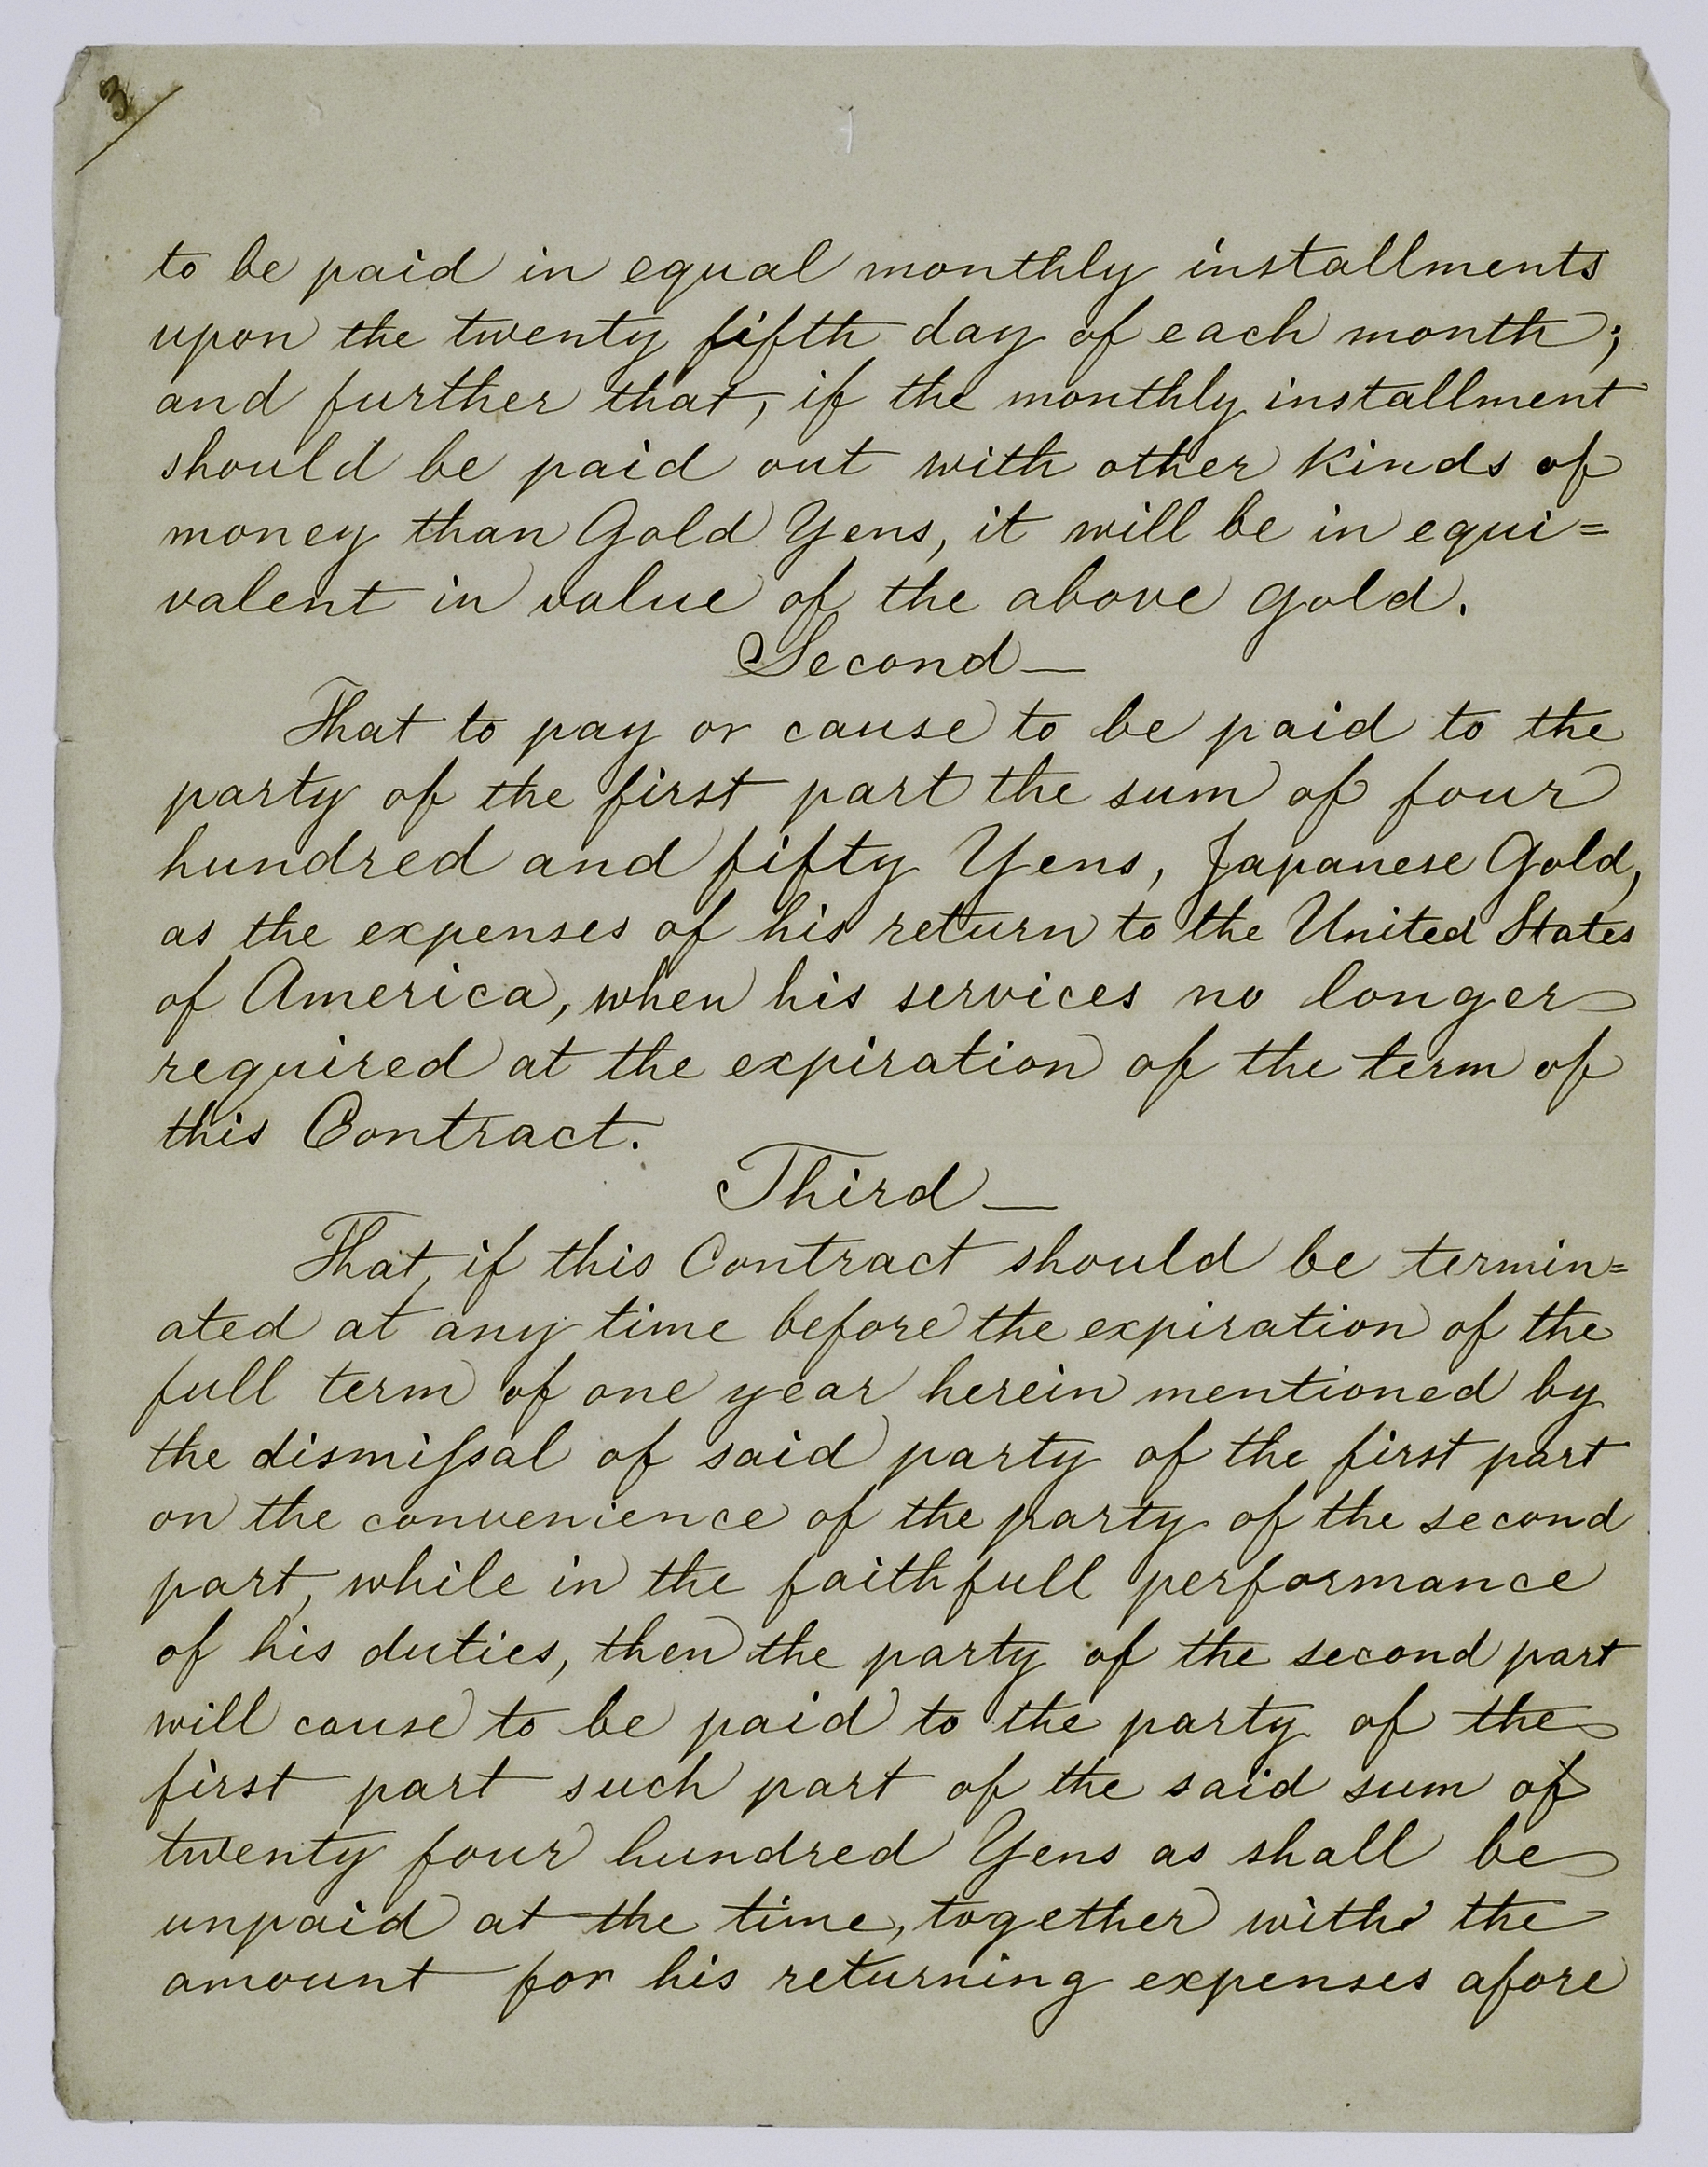 3/
to be paid in equal monthly installments
upon the twenty fifth day of each month;
and further that, if the monthly installment
should be paid out with other kinds of
money than Gold Yens, it will be in equi=
valent in value of the above gold.
Second—
That to pay or cause to be paid to the
party of the first part the sum of four
hundred and fifty Yens, Japanese Gold,
as the expenses of his return to the United States
of America, when his services no longer
required at the expiration of the term of
this Contract.
Third—
That, if this Contract should be termin=
ated at any time before the expiration of the
full term of one year herein mentioned by
the dismiſsal of said party of the first part
on the convenience of the party of the second
part, while in the faithfull performance
of his duties, then the party of the second part
will cause to be paid to the party of the
first part such part of the said sum of
twenty four hundred Yens as shall be
unpaid at the time, together with the
amount for his returning expenses afore